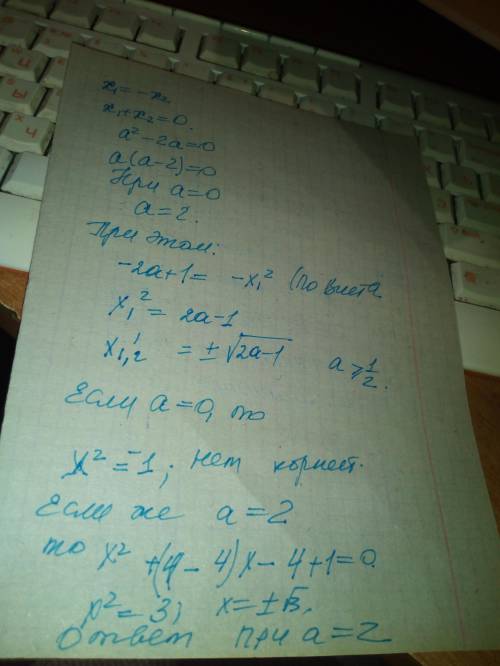 x₁ = -x₂
x₁+x₂=0.
a²-2a=0
a(a-2)=0
При a=0
a=2.
При этом:
-2a+1= -x₁² (по Виета
x₁² = 2a-1
x₁,₂ = ±√2a-1 a⩾1/2.
Если a=0, то
x²=-1; нет корней.
Если же a=2
то x²+(4-4)x-4+1=0
x²=3; x=±√3.
Ответ при a=2